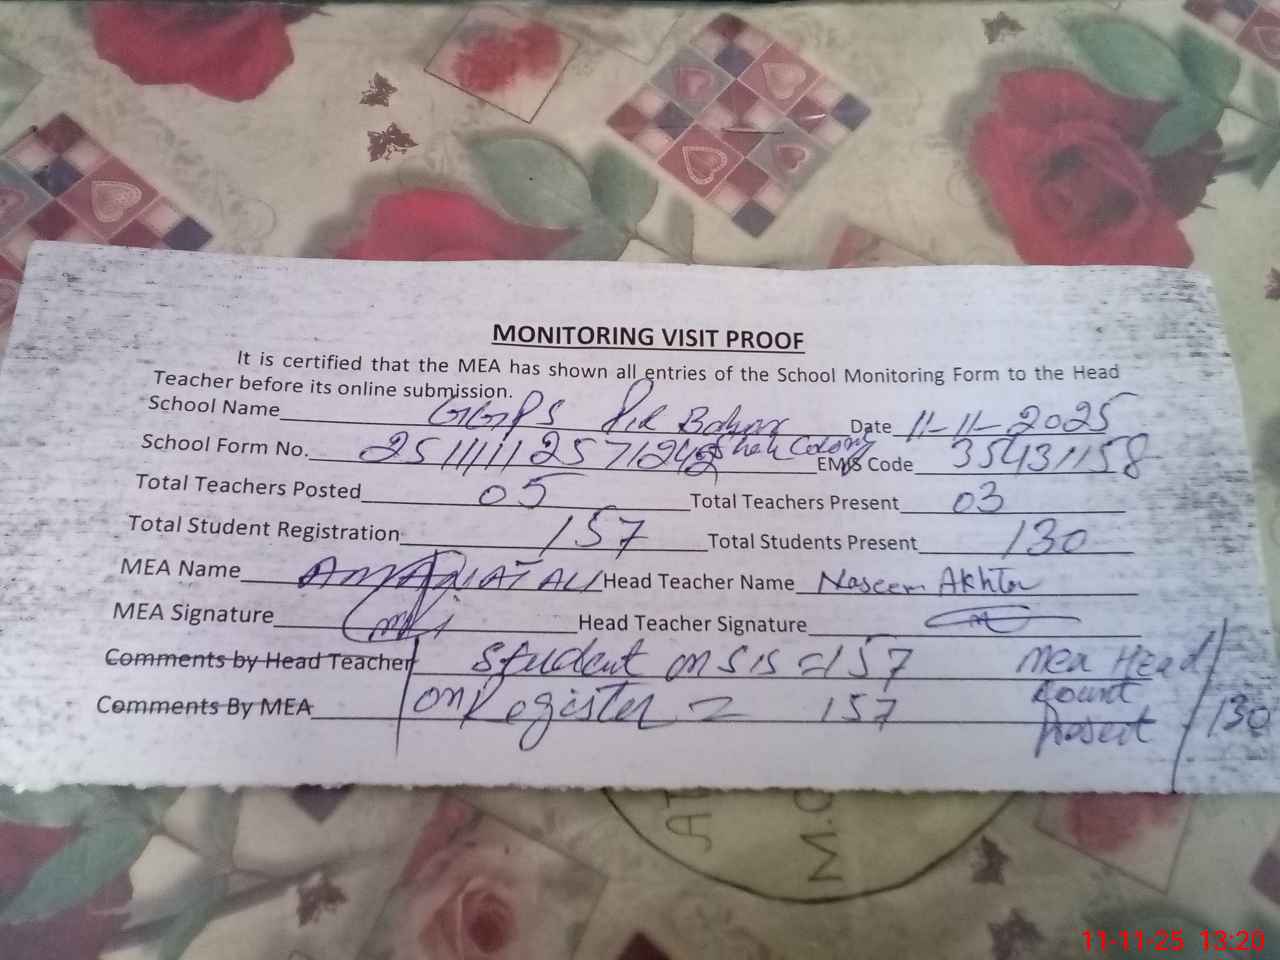 MONITORING VISIT PROOF
It is certified that the MEA has shown all entries of the School Monitoring Form to the Head
Teacher before its online submission.
School Name GGPS Pir Bahar Shah Colony Date 11-11-2025
School Form No. EMIS Code 35431158
Total Teachers Posted 05 Total Teachers Present 03
Total Student Registration 157 Total Students Present 130
MEA Name AMANAT ALI Head Teacher Name Naseem Akhtar
MEA Signature Head Teacher Signature
Comments by Head Teacher Student on SIS = 157 MEA Head
Comments By MEA on Register = 157 Count
Present 130
11-11-25 13:20